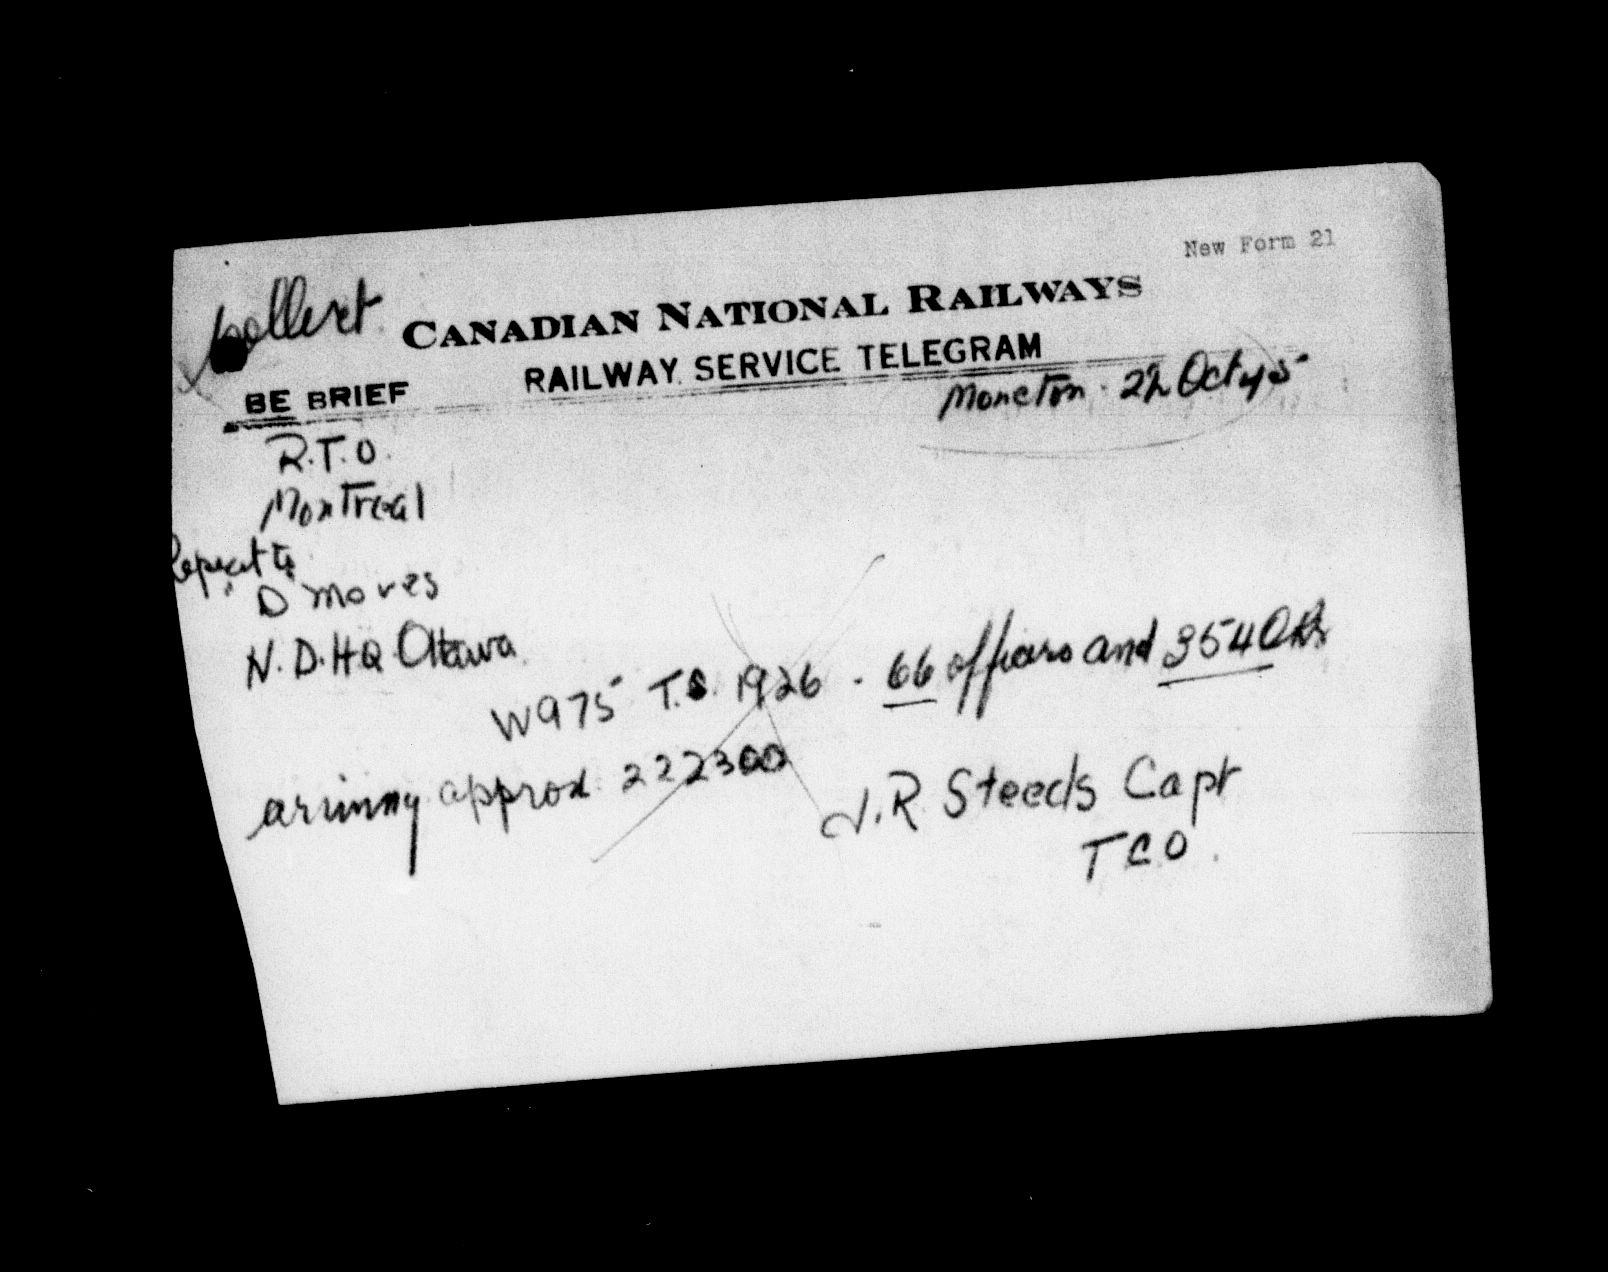 New Form 21
Collect
CANADIAN NATIONAL RAILWAYS
RAILWAY SERVICE TELEGRAM
BE BRIEF
Moncton. 22 Oct 45
R.T.O.
Montreal
Repeat to
D Moves
N.D.HQ Ottawa
W975 T.S. 1926. 66 officers and 354 ORs
arriving approx 222300
J.R. Steeds Capt
TCO.